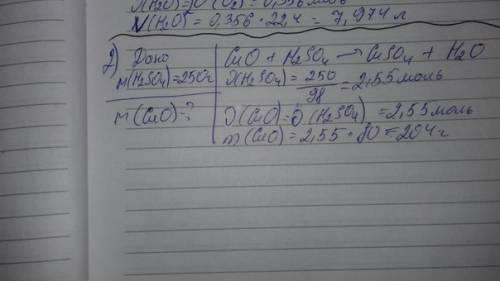 V(H₂O) = 0,356 · 22,4 = 7,974 л
2) Дано
m(H₂SO₄) = 250г
m(CuO) - ?
CuO + H₂SO₄ → CuSO₄ + H₂O
ν(H₂SO₄) = 250/98 = 2,55 моль
ν(CuO) = ν(H₂SO₄) = 2,55 моль
m(CuO) = 2,55 · 80 = 204 г